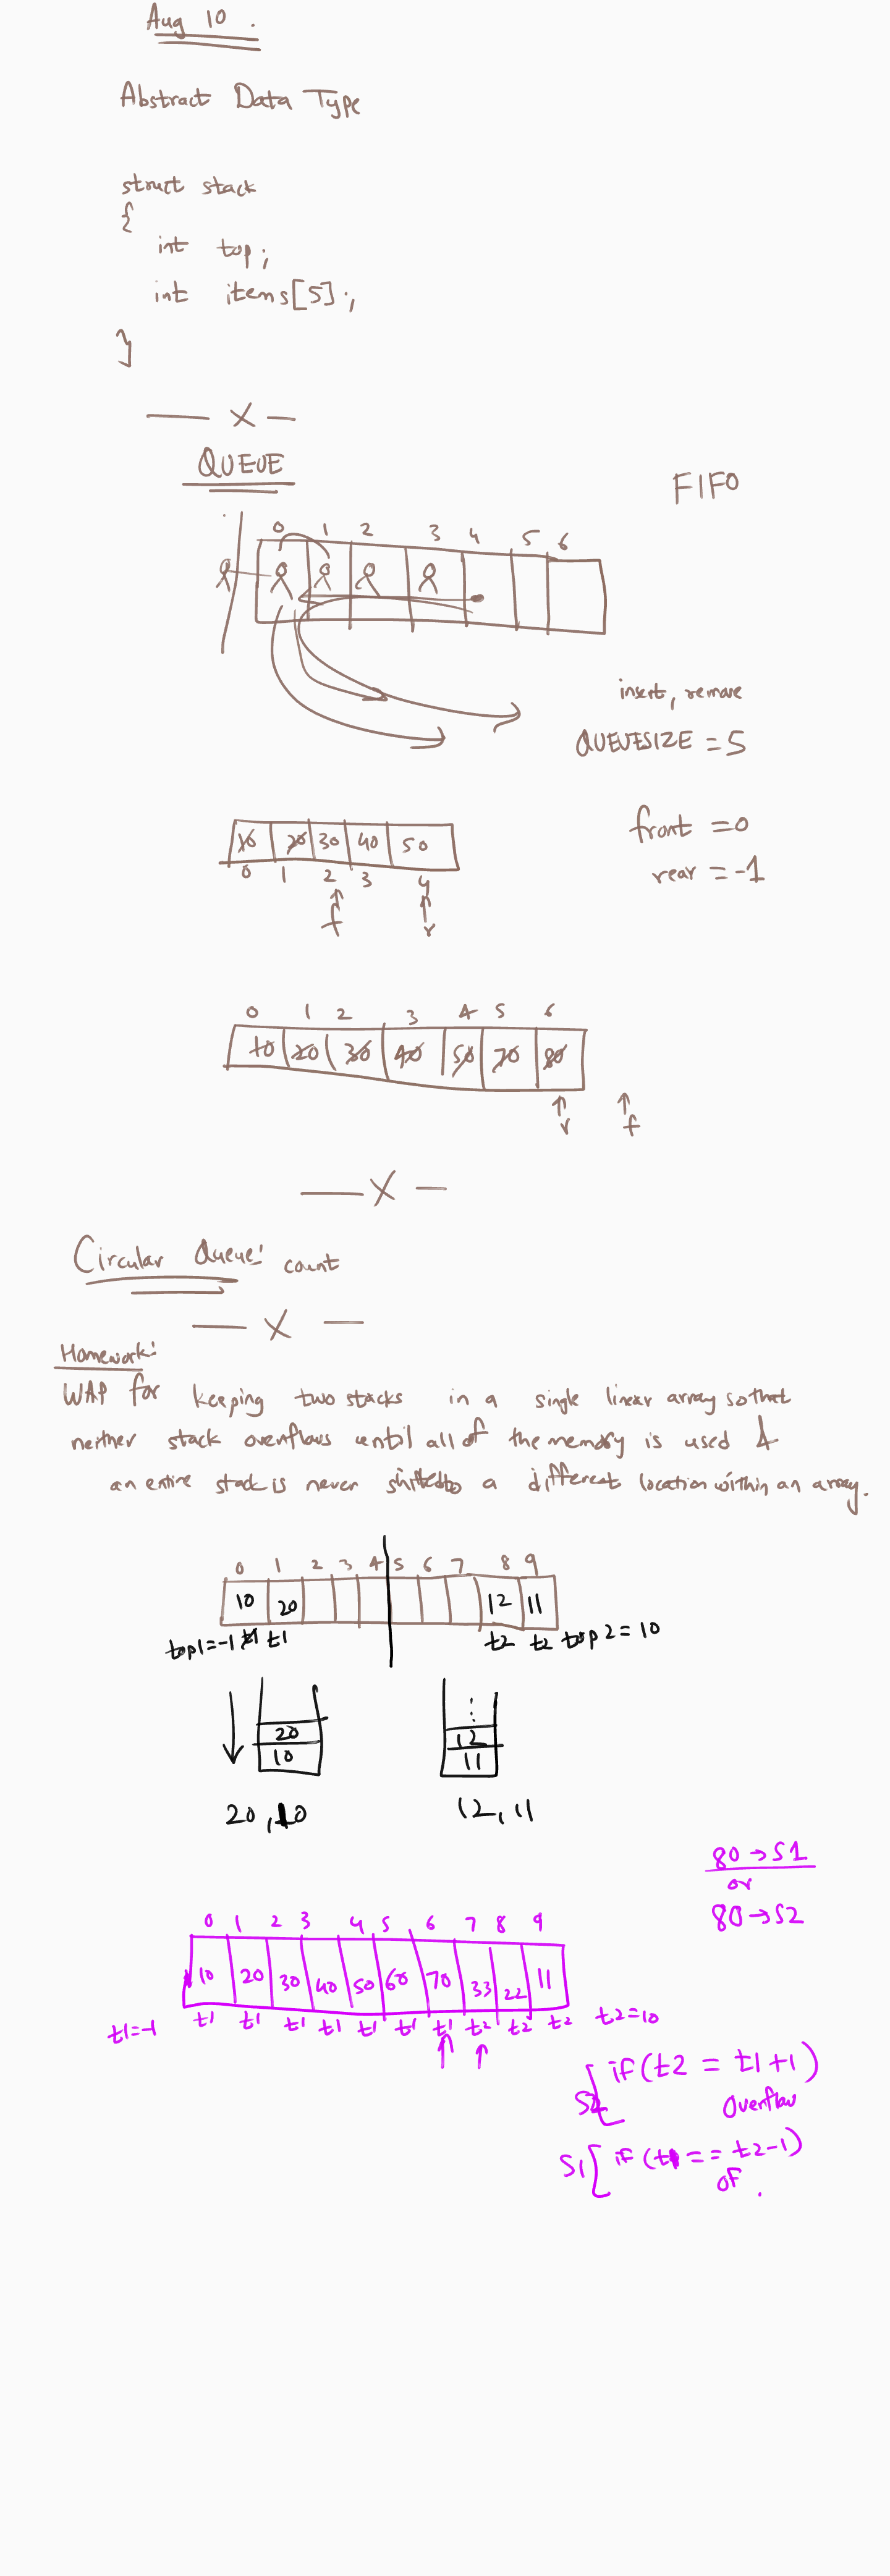 Aug 10.
Abstract Data Type
struct stack
{
int top;
int items[5];
}
— X —
QUEUE
FIFO
0 1 2 3 4 5 6
insert, remove
QUEUESIZE = 5
10 20 30 40 50
front = 0
0 1 2 3 4
rear = -1
f r
0 1 2 3 4 5 6
10 20 30 40 50 70 80
r f
— X —
Circular Queue: count
— X —
Homework:
WAP for keeping two stacks in a single linear array so that
neither stack overflows until all of the memory is used &
an entire stack is never shifted to a different location within an array.
0 1 2 3 4 5 6 7 8 9
10 20 12 11
top1=-1 t1 t1 t2 t2 top2=10
20 12
10 11
20,10 12,11
80→S1
or
80→S2
0 1 2 3 4 5 6 7 8 9
10 20 30 40 50 60 70 33 22 11
t1=-1 t1 t1 t1 t1 t1 t1 t1 t2 t2 t2 t2=10
S2 [ if(t2 = t1+1)
Overflow
S1 [ if(t1 == t2-1)
of.